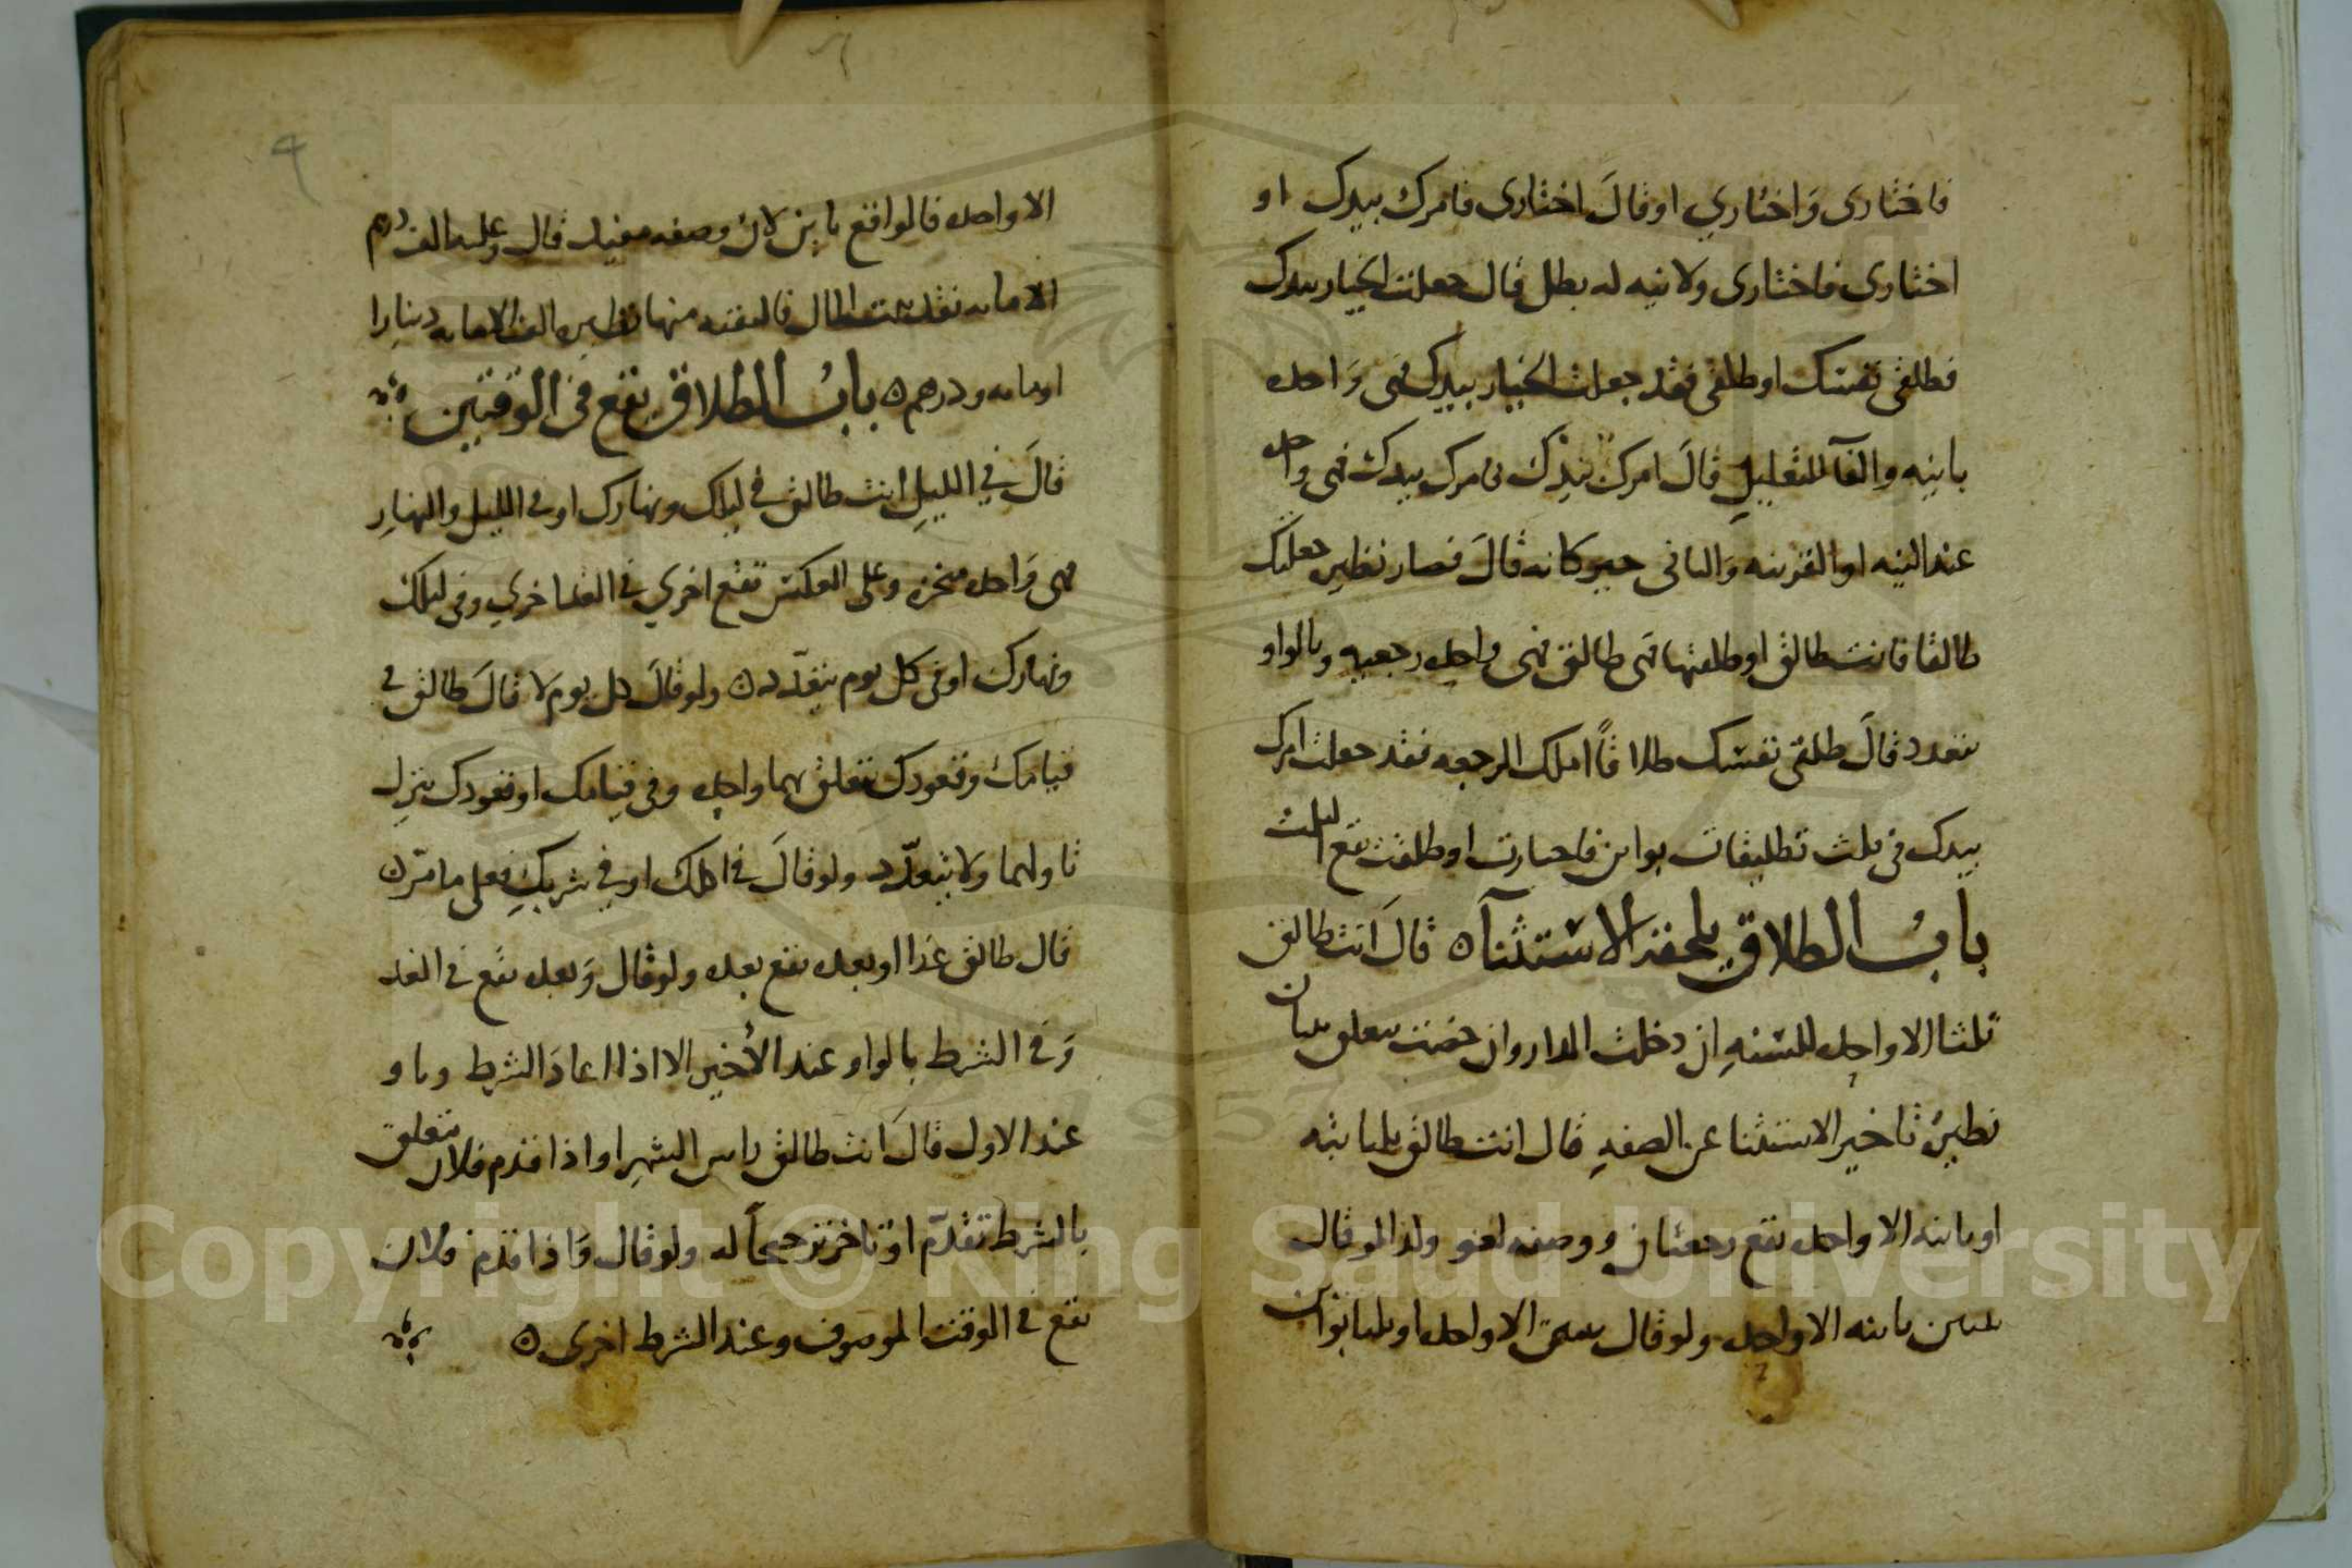 فاختارى وَاختاري اوقالَ اختارى فامرك بيدك او
اختارى فاختارى ولا نيه له بطل قال جعلت الخيار بيدك
فطلقى نفسك اوطلقى فقد جعلت الخيار بيدك فهى وَاحده
باينه والفآ للتعليلِ قالَ امرك بيدك فامرك بيدك فهى واحده
عند النيه او القرينه وَالباقى قالَ فصار نظير جعلتك
طالقا فانت طالق او طلقتها فهى طالق فهى واحده رجعيه وبالواو
يتعدد قالَ طلقى نفسك طلاقاً املك الرجعه فقد جعلت امرك
بيدك فى ثلث تطليقات بواين فاختارت او طلقت تقع الثلث
بابُ الطلاق يلحقه الاستثنآ ه قالَ انت طالق
ثلثا الا واحده للسنهِ ان دخلت الدار وان حضت يتعلق ثنتان
نظيرُ تاخير الاستثنا عن الصفهِ قال انت طالق ثلثا بته
او باينه الا واحده تقع رجعتان ووصفه لغو ولذا لو قال
ثنتين باينه الا واحده ولو قال الا واحده او ثلثا بواين
الا واحده فالواقع باين لان وصفه مفيد قال وعليه الف درهم
الا مايه نقد بيت المال فالبقيه منها نظيره الف الا مايه دينارا
او مايه ودرهم ه بابُ الطلاق يقع فى الوقتين
قالَ في الليلِ انت طالق في ليلك ونهارك او فى الليل والنهارِ
فهى وَاحده منجزه وعلى العكس تقع اخري في الغد اخري وفى ليلك
ونهارك او فى كل يوم يتعدّد ه ولو قالَ كل يوم لا قالَ طالق فى
قيامك وقعودك تتعلق بهما واحده وفى قيامك او قعودك ينزل
باولهما ولا يتعدّد ولو قالَ فى اكلك او في شربكِ فعلى ما مرّ ه
قال طالق غدا او بعده تقع بعده ولو قال وَبعده تقع فى الغد
وَفى الشرط بالواو عند الأخير الا اذا اعادَ الشرط وباو
عند الاول قالَ انت طالق راس الشهرِ او اذا قدم فلان يتعلق
بالشرط تقدّم او تاخر ترجيحاً له ولو قال وَاذا قدم فلان
تقع فى الوقت الموصوف وعند الشرط اخرى ه
Copyright © King Saud University
1957